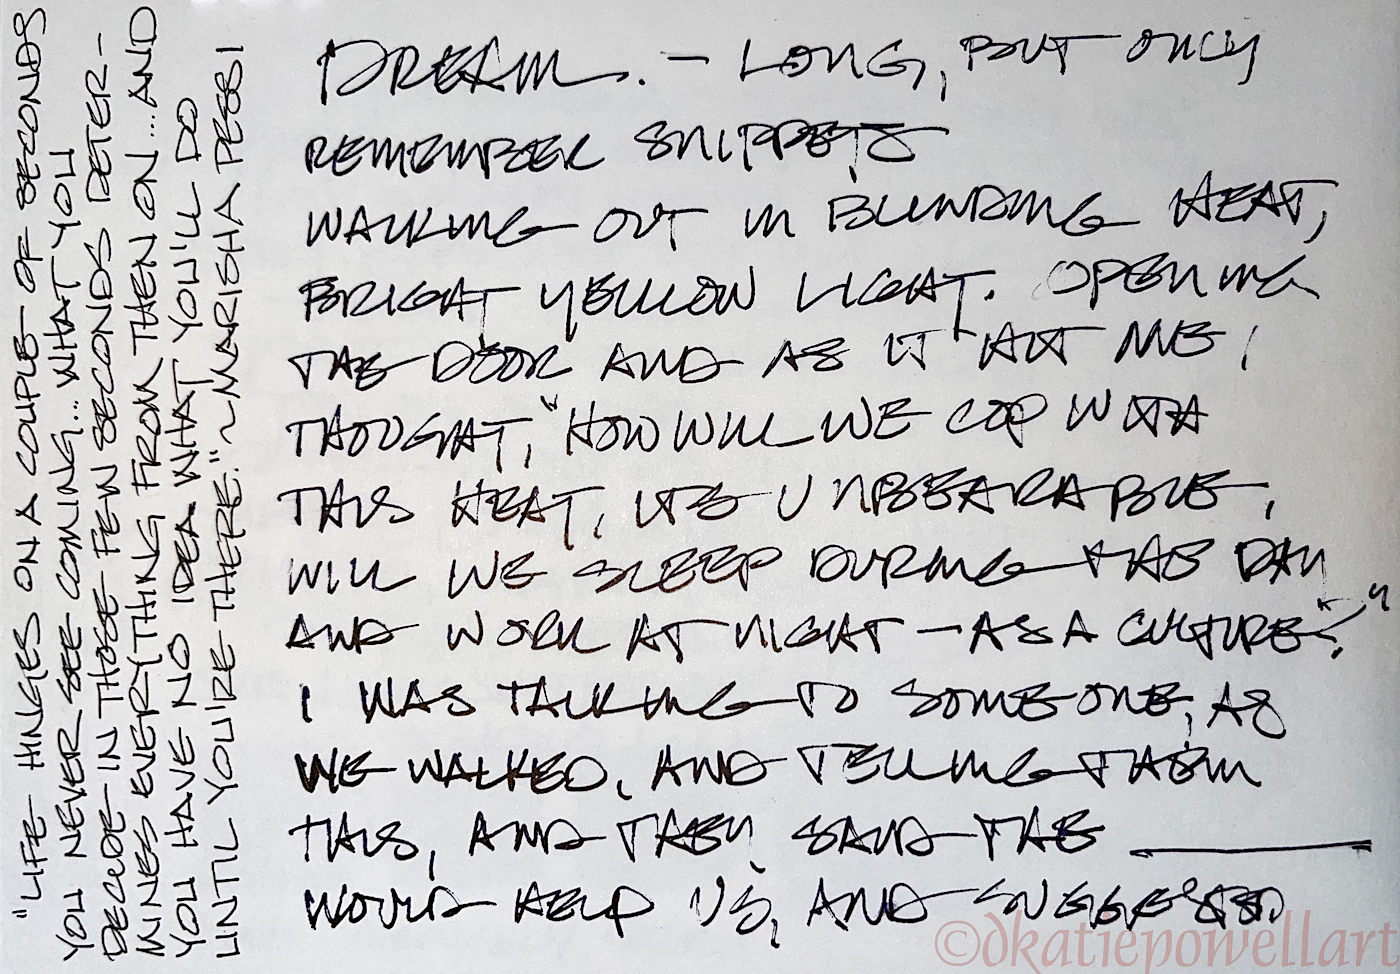 "LIFE HINGES ON A COUPLE OF SECONDS
YOU NEVER SEE COMING... WHAT YOU
DECIDE IN THOSE FEW SECONDS DETER-
MINES EVERYTHING FROM THEN ON... AND
YOU HAVE NO IDEA WHAT YOU'LL DO
UNTIL YOU'RE THERE." ~MARISHA PESSI
DREAM. - LONG, BUT ONLY
REMEMBER SNIPPETS
WALKING OUT IN BLINDING HEAT,
BRIGHT YELLOW LIGHT. OPENING
THE DOOR AND AS IT HIT ME I
THOUGHT, "HOW WILL WE COP WITH
THIS HEAT, ITS UNBEARABLE,
WILL WE SLEEP DURING THE DAY
AND WORK AT NIGHT - AS A CULTURE?"
I WAS TALKING TO SOMEONE, AS
WE WALKED, AND TELLING THEM
THIS, AND THEY SAID THE ______
WOULD HELP US, AND SUGGESTED.
©dkatiepowellart